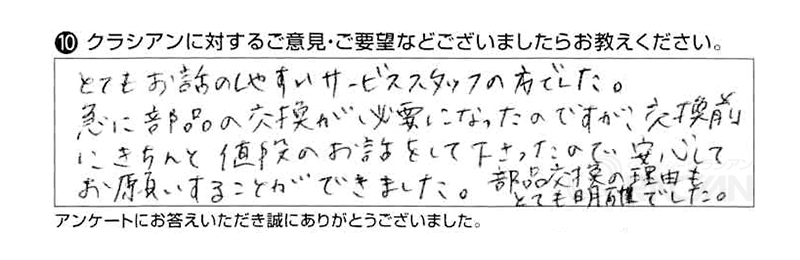 ⑩ クラシアンに対するご意見・ご要望などございましたらお教えください。
とてもお話のしやすいサービススタッフの方でした。
急に部品の交換が必要になったのですが、交換前
にきちんと値段のお話をして下さったので安心して
お願いすることができました。部品交換の理由も
とても明確でした。
アンケートにお答えいただき誠にありがとうございました。